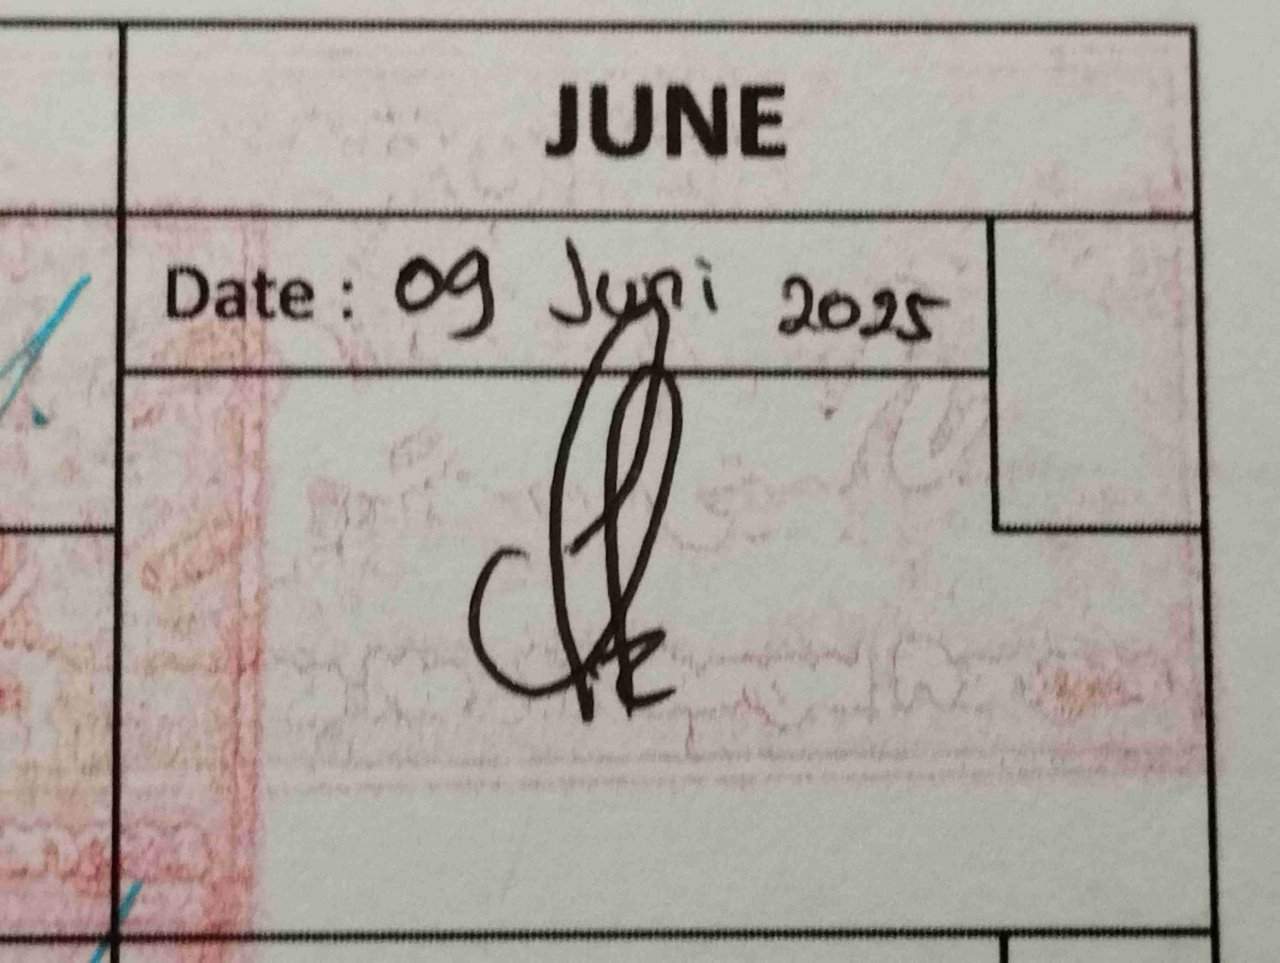 JUNE
Date : 09 Juni 2025